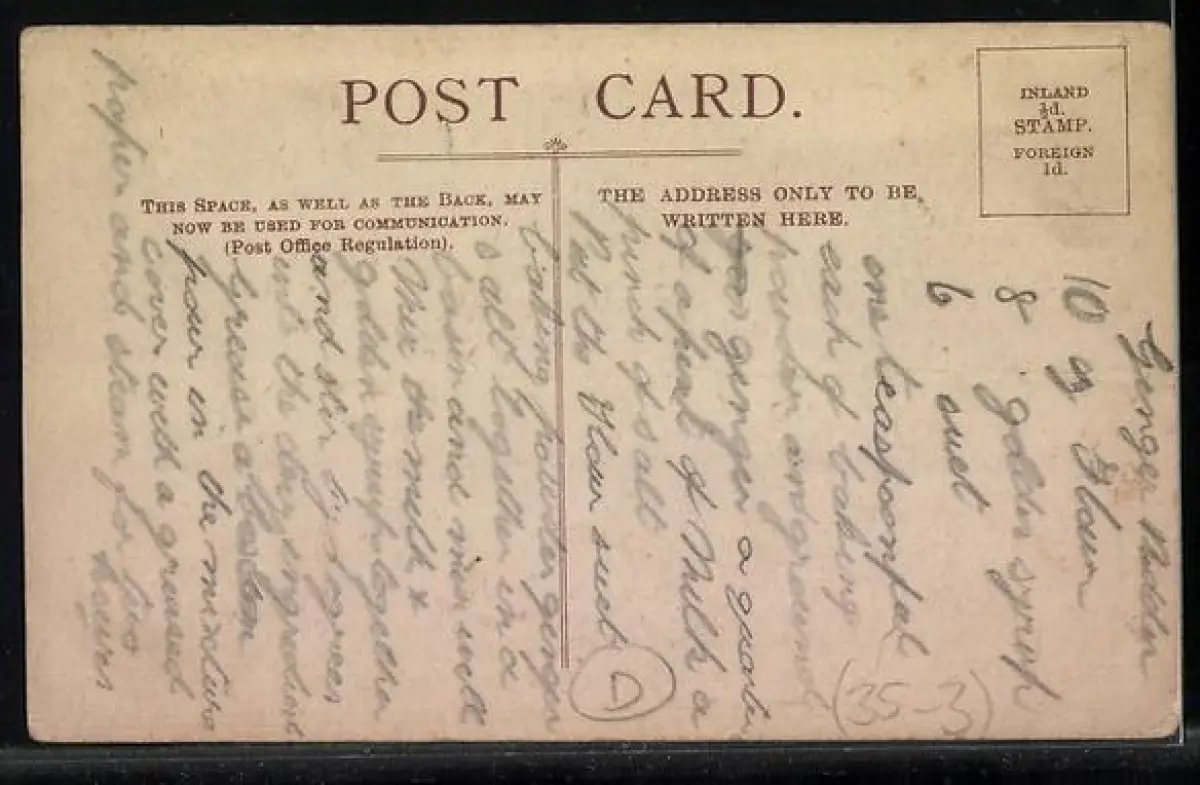 POST CARD.
THIS SPACE, AS WELL AS THE BACK, MAY
NOW BE USED FOR COMMUNICATION.
(Post Office Regulation).
THE ADDRESS ONLY TO BE
WRITTEN HERE.
INLAND
½d.
STAMP.
FOREIGN
1d.
Ginger
10 Flour
8 golden syrup
6 suet
one teaspoonful
each of baking
powder and ground
ginger a quarter
of a pint of Milk a
pinch of salt
Put the Flour suet
baking powder ginger
all together in a
basin and mix well
Mix the milk &
golden syrup together
and stir
into the dry
Grease a
pour in the mixture
cover with a greased
paper and steam for two
hours
(35-3)
D